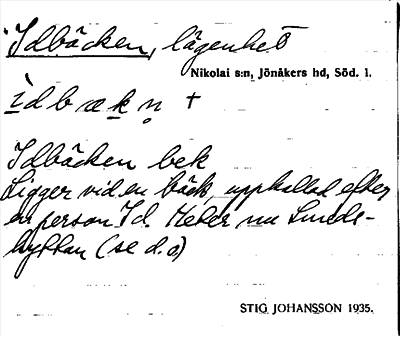 Idbäcken, lägenhet
Nikolai s:n, Jönåkers hd, Söd. l.
i d b æ k n̥ +
Idbäcken bek
Ligger vid en bäck, uppkallad efter
en person Id. Heter nu Lunde-
hyttan (se d.o)
STIG JOHANSSON 1935.